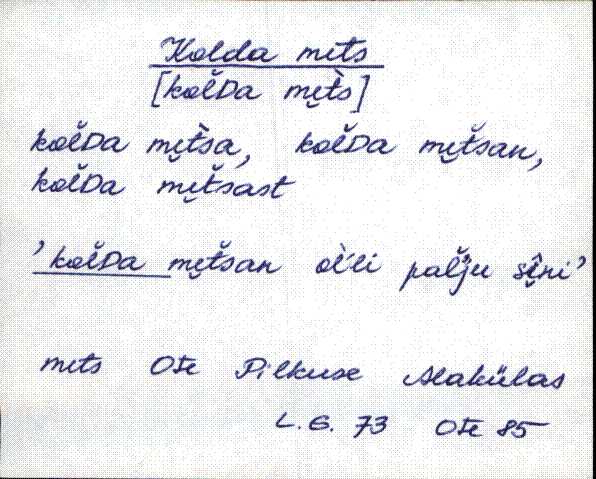 Kolda mets
[kol̆Da me̮t̀s]
kol̆Da me̮t̀sa, kol̆Da me̮t̆san,
kol̆Da me̮t̆sast
'kol̆Da me̮t̆san òl̆li pal̆'ju sē̮ni'
mets Ote Pilkuse Alakülas
L. G. 73 Ote 85